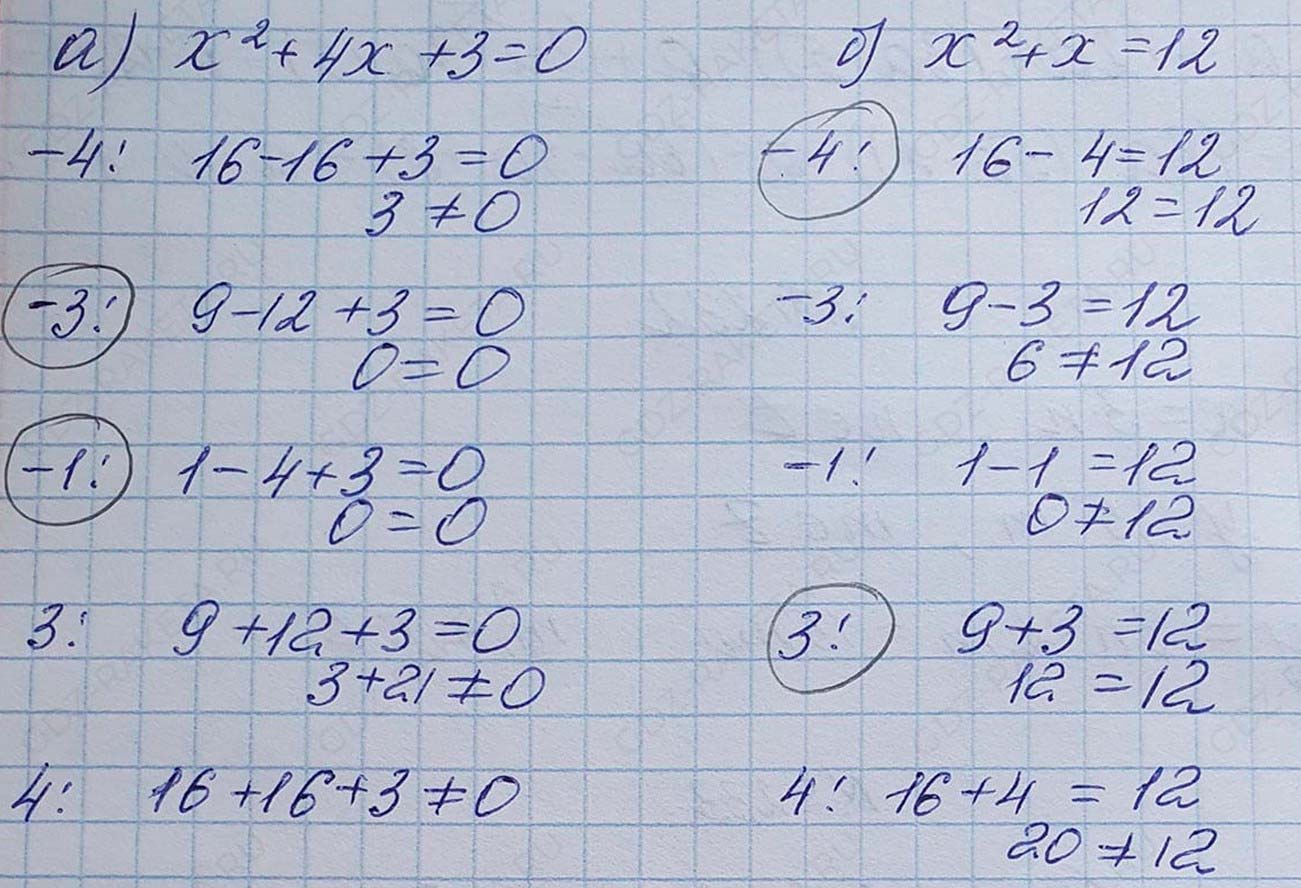 а) x² + 4x + 3 = 0
-4: 16 - 16 + 3 = 0
3 ≠ 0
-3: 9 - 12 + 3 = 0
0 = 0
-1: 1 - 4 + 3 = 0
0 = 0
3: 9 + 12 + 3 = 0
3 + 21 ≠ 0
4: 16 + 16 + 3 ≠ 0
б) x² + x = 12
-4: 16 - 4 = 12
12 = 12
-3: 9 - 3 = 12
6 ≠ 12
-1: 1 - 1 = 12
0 ≠ 12
3: 9 + 3 = 12
12 = 12
4: 16 + 4 = 12
20 ≠ 12